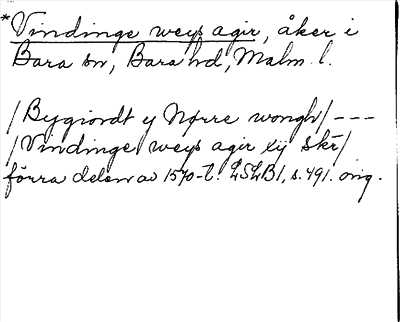 *Vindinge weys agir, åker i
Bara sn, Bara hd, Malm. l.
/Bygiordt y Nørre wongh/ ---
/Vindinge weys agir xij skr/
förra delen av 1570-t. LSLB1, s. 491. orig.